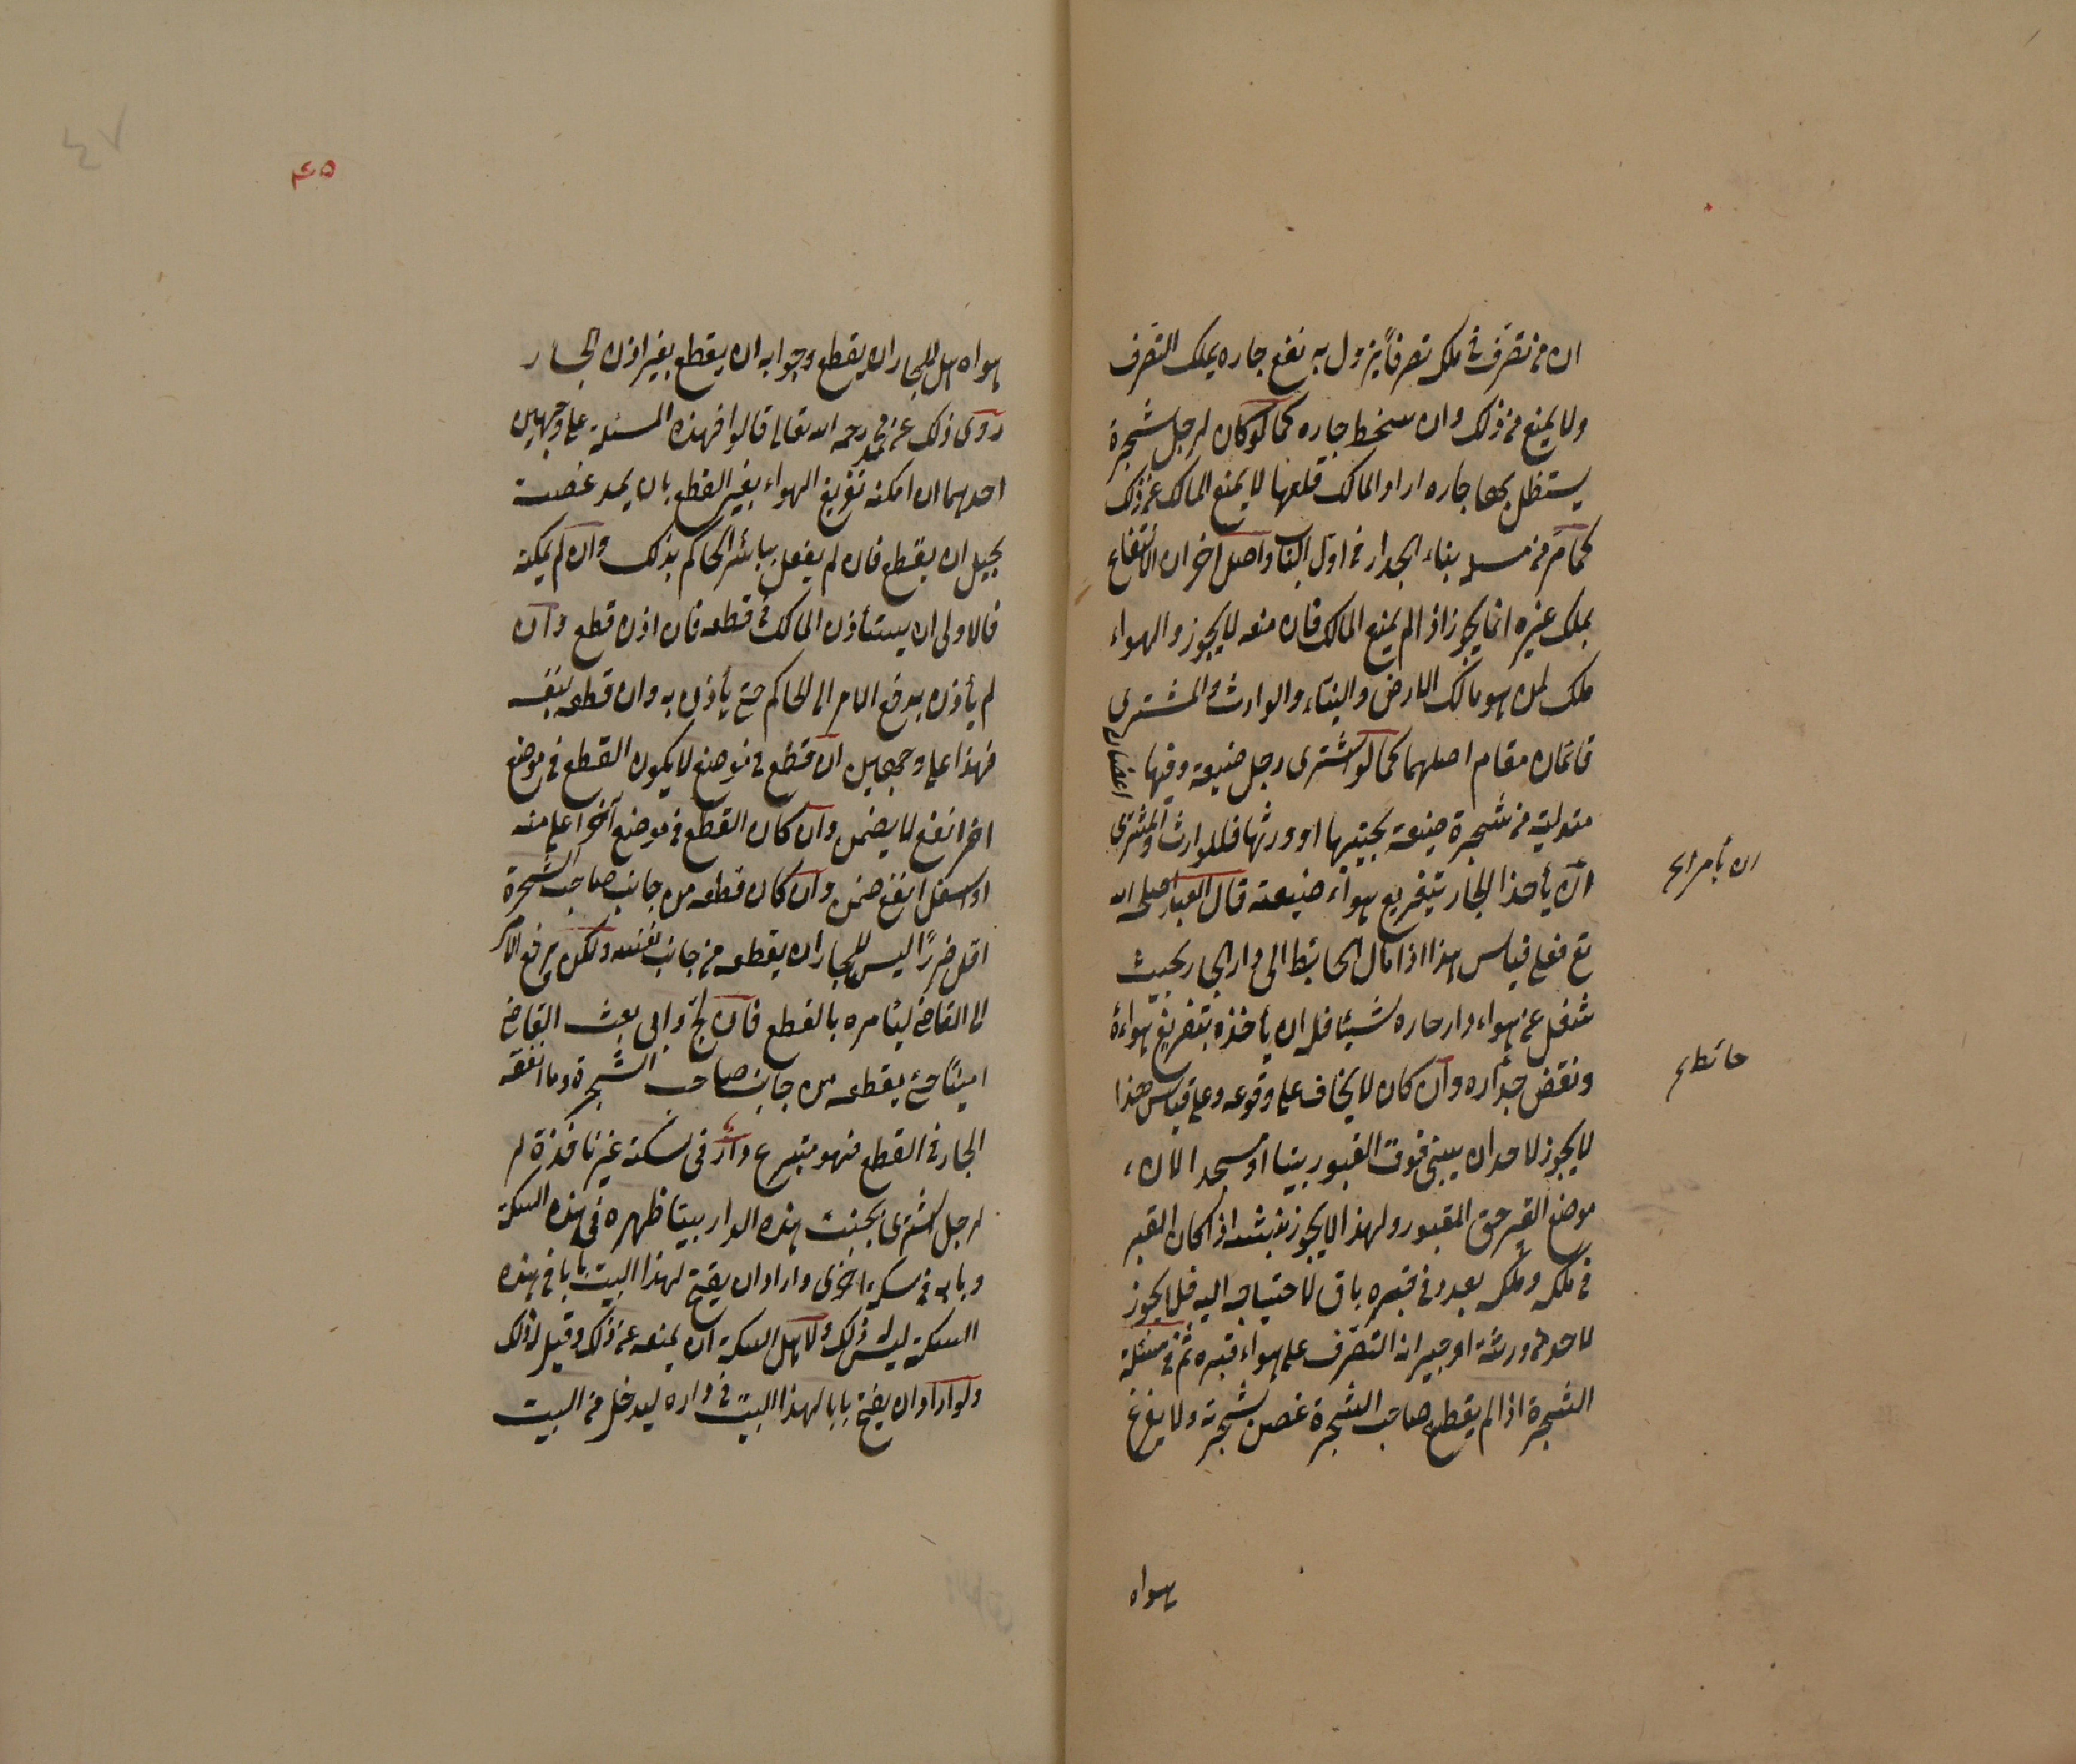 ان من تصرف في ملكه تصرفاً يزول به نفع جاره يملك التصرف
ولا يمنع من ذلك وان سخط جاره كما لو كان لرجل شجرة
يستظل بها جاره اراد المالك قلعها لا يمنع المالك عن ذلك
كما مر في بناء الجدار في اول الكتاب واصل آخر ان الانتفاع
بملك غيره انما يجوز اذا لم يمنع المالك فان منعه لا يجوز والهواء
ملك لمن هو مالك الارض والبناء والوارث والمشترى
قائمان مقام اصلهما كما لو اشترى رجل ضيعة وفيها اغصان
متدلية من شجرة ضيعة بجنبها او ورثها فللوارث والمشترى
ان يأخذ الجار بتفريغ هواء ضيعته قال العبد اصلحه الله
تع فعلى قياس هذا اذا مال الحائط الى دار الجار بحيث
شغل من هواء دار جاره شيئا فله ان يأخذه بتفريغ هواءه
ونقض جداره وان كان لا يخاف على وقوعه وعلى قياس هذا
لا يجوز لاحد ان يبنى فوق القبور بيتا او مسجدا لان
موضع القبر حق المقبور ولهذا لا يجوز نبشه اذا كان القبر
في ملكه وملكه بعد في قبره باق لاحتياجه اليه فلا يجوز
لاحد من ورثته او جيرانه التصرف على هواء قبره ثم في مسئلة
الشجرة اذا لم يقطع صاحب الشجرة غصن شجرته ولا يفرغ
ان يأمر الح
حائطه
هواه
٤٧
٤٥
هواه هل للجار ان يقطع وجوابه ان يقطع بغير اذن الجار
روى ذلك عن محمد رحمه الله تعالى قالوا فهذه المسئلة على وجهين
احدهما ان امكنه تفريغ الهواء بغير القطع بان يمد غصنه
بحبل ان يقطع فان لم يفعل يباشر الحاكم بذلك وان لم يمكنه
فالاولى ان يستأذن المالك في قطعه فان اذن قطع وان
لم يأذن يرفع الامر الى الحاكم حتى يأذن به وان قطعه بنفسه
فهذا على وجهين ان قطع في موضع لا يكون القطع في موضع
اخر انفع لا يضمن وان كان القطع في موضع آخر اعلى منه
او اسفل انفع ضمن وان كان قطعه من جانب صاحب الشجرة
اقل ضررًا ليس للجار ان يقطعه من جانب نفسه ولكن يرفع الامر
الى القاضى ليأمره بالقطع فان لج وابى بعث القاضى
امينًا حتى يقطعه من جانب صاحب الشجرة وما انفقه
الجار في القطع فهو متبرع دار في سكة غير نافذة لر
لرجل اشترى بجنب هذه الدار بيتا ظهره في هذه السكة
وبابه في سكة اخرى واراد ان يفتح لهذا البيت بابا في هذه
السكة ليس له ذلك ولاهل السكة ان يمنعه عن ذلك وقيل له ذلك
ولو اراد ان يفتح بابا لهذا البيت في داره ليدخل من البيت